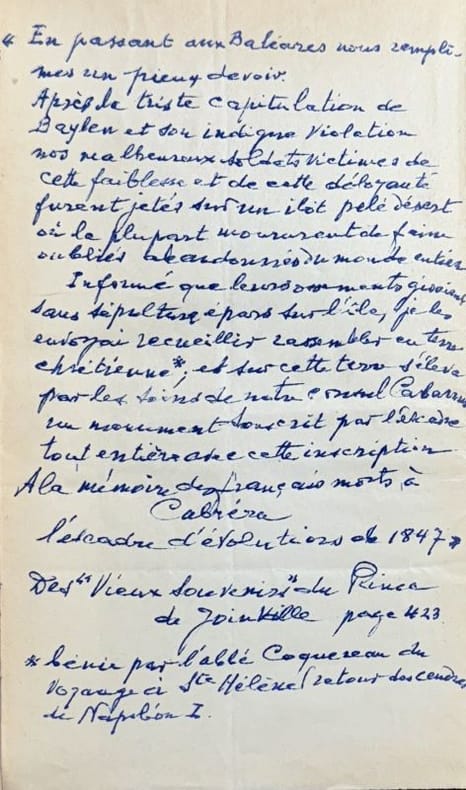 « En passant aux Baléares nous rempli-
mes un pieux devoir.
Après la triste capitulation de
Baylen et son indigne violation
nos malheureux soldats victimes de
cette faiblesse et de cette déloyauté
furent jetés sur un ilot pelé désert
où la plupart moururent de faim
oubliés abandonnés du monde entier
Informé que leurs ossements gisaient
sans sépulture épars sur l'île, je les
envoyai recueillir rassembler en terre
chrétienne*; et sur cette terre s'éleva
par les soins de notre consul Cabarrus
un monument souscrit par l'escadre
tout entière avec cette inscription
A la mémoire des français morts à
Cabréra
l'escadre d'évolutions de 1847 »
Des "Vieux Souvenirs" du Prince
de Joinville page 423
* bénie par l'abbé Coquereau du
voyage à Ste Hélène (retour des cendres
de Napoléon I.